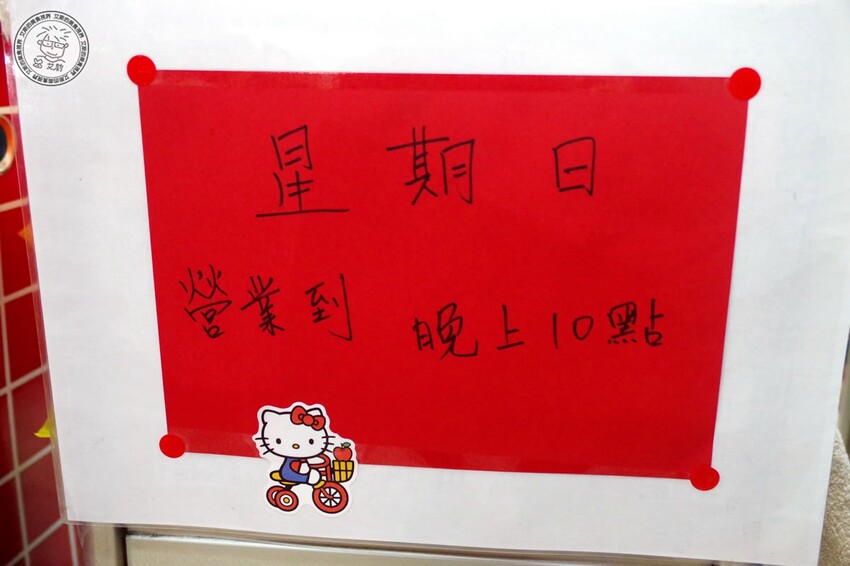 星期日
營業到 晚上10點